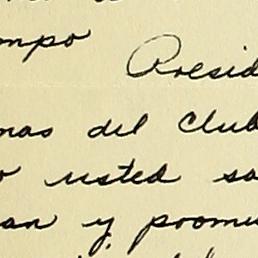 mpo
Presid
mas del Club
o usted sa
an y promu